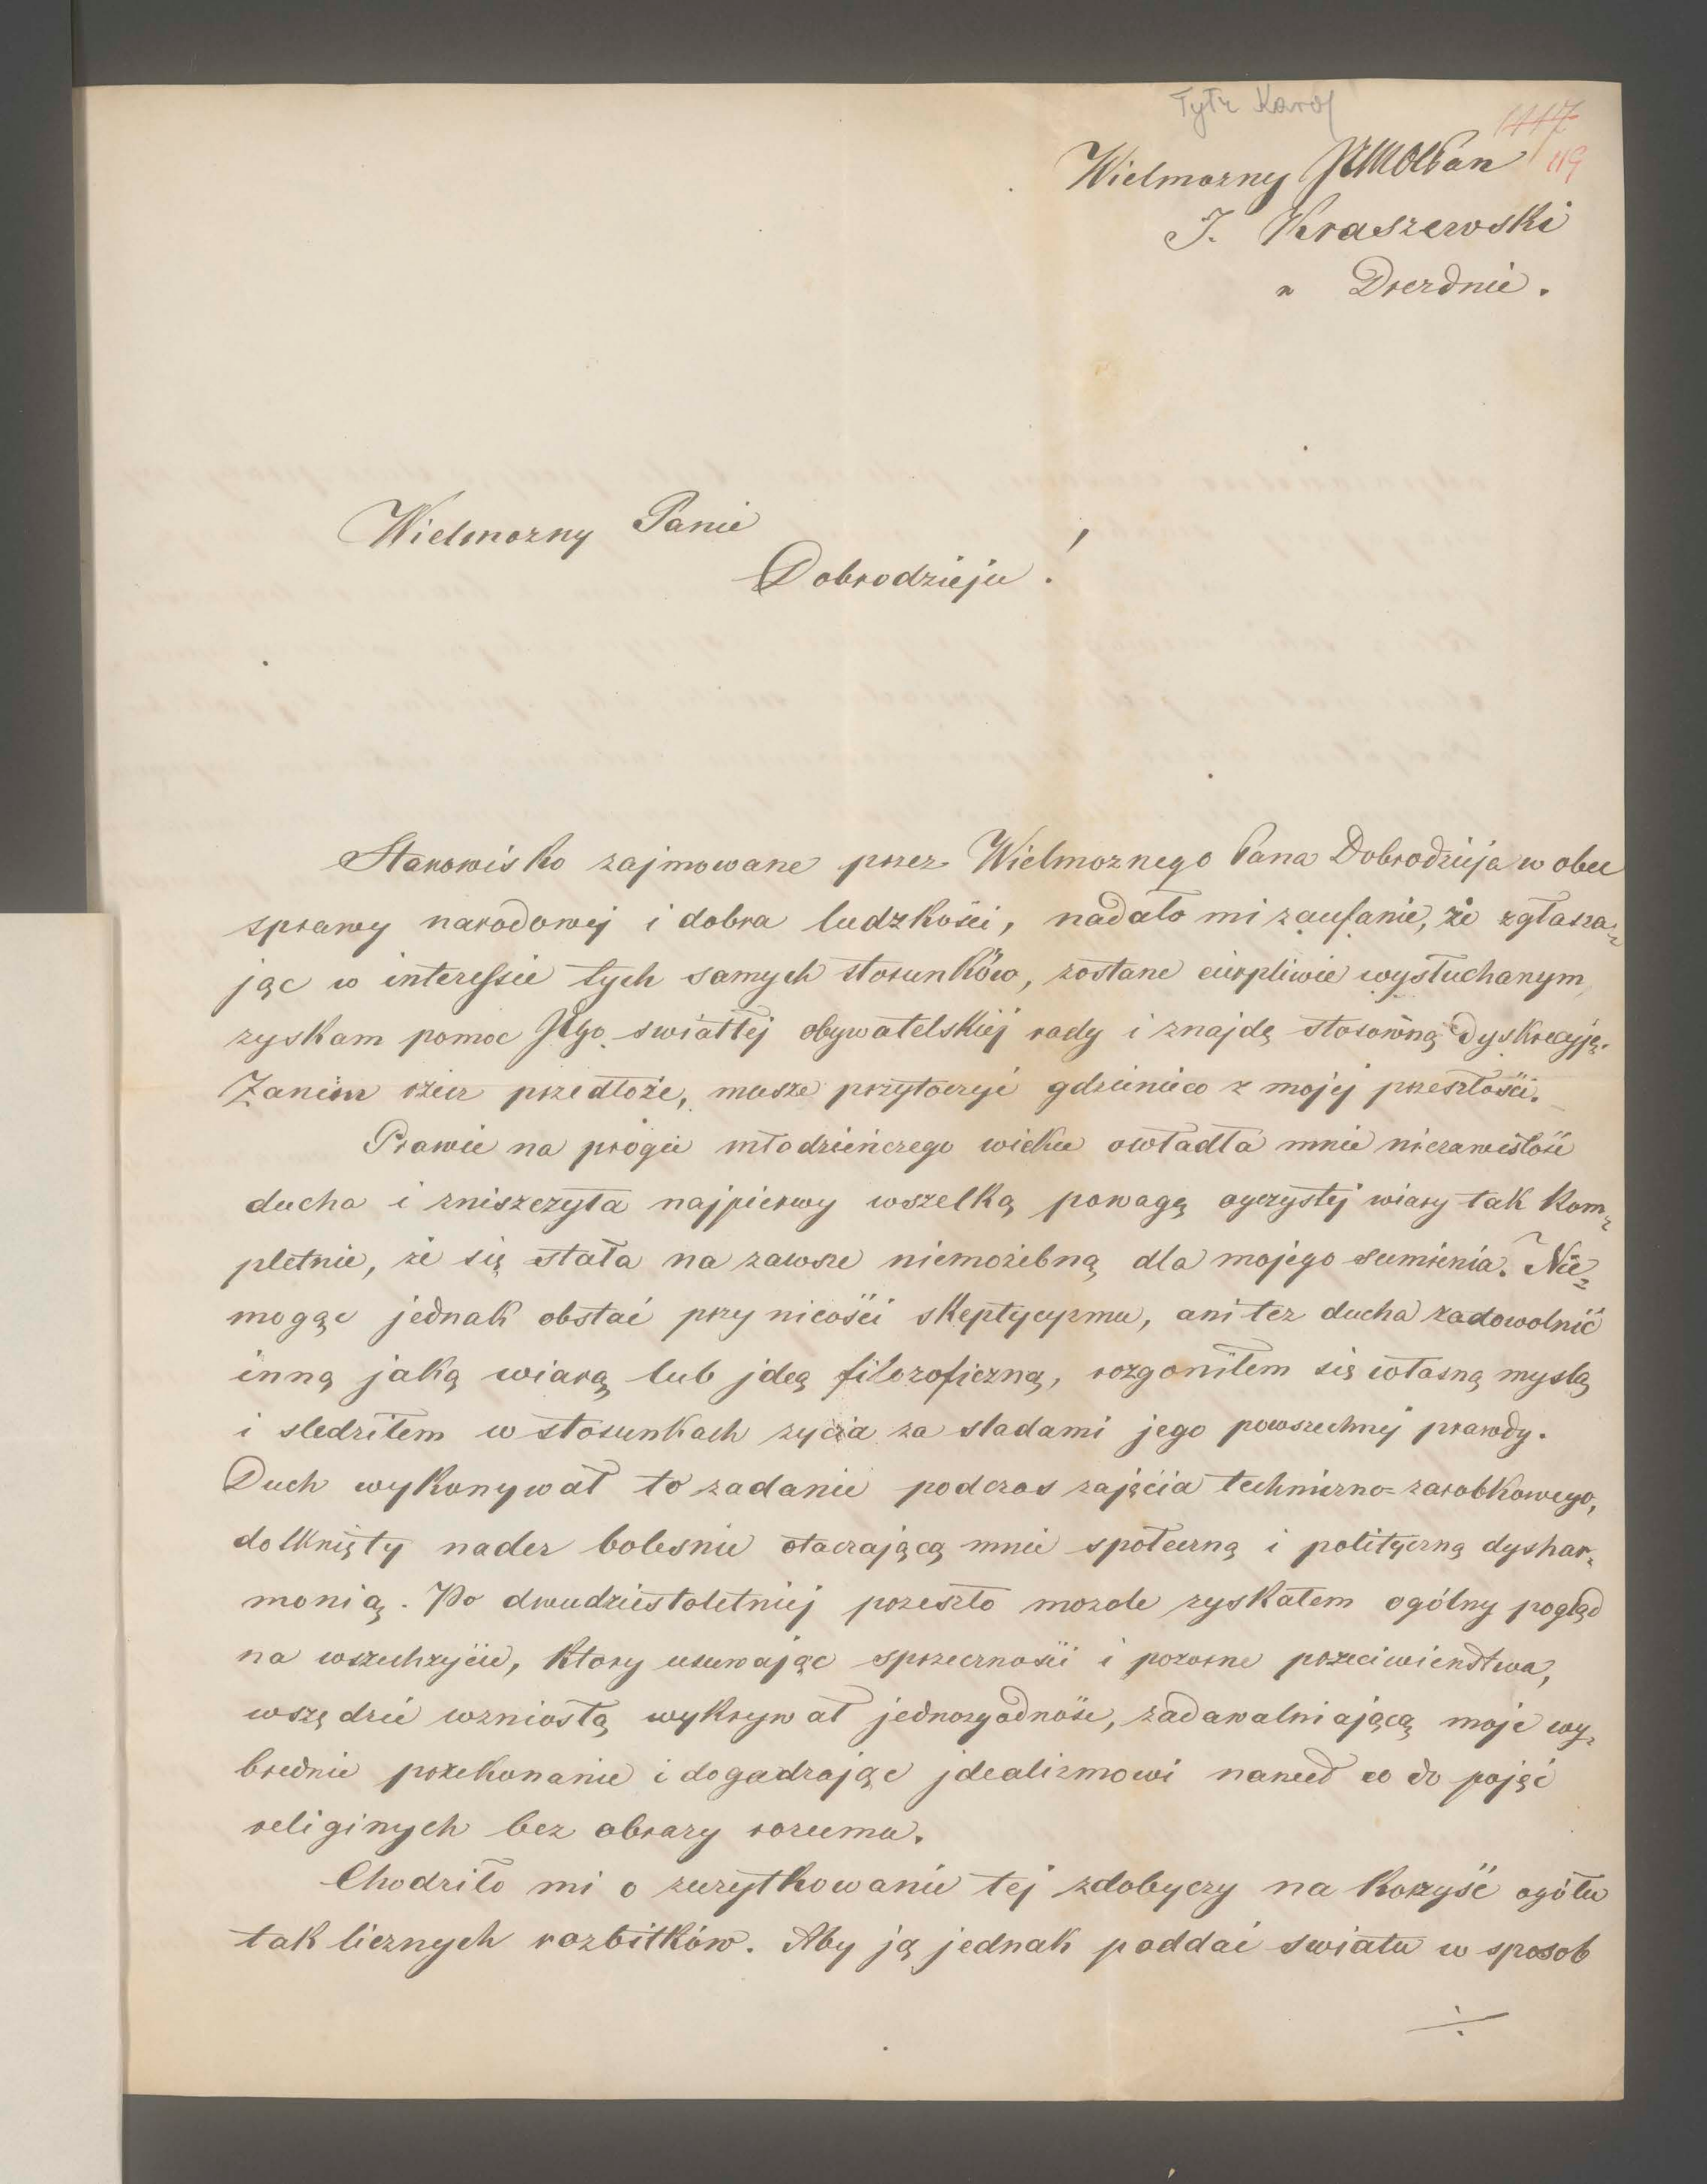 Tytz Karol
1117
119
Wielmożny JMPan
J. Kraszewski
w Dreźnie.
Wielmożny Panie
Dobrodzieju!
Stanowisko zajmowane przez Wielmożnego Pana Dobrodzieja w obec
sprawy narodowej i dobra ludzkości, nadało mi zaufanie, że zgłasza=
jąc w interessie tych samych stosunków, zostanę cierpliwie wysłuchanym
zyskam pomoc Jego swiatłej obywatelskiej rady i znajdę stosowną dyskrecyję.
Zanim rzecz przedłożę, muszę przytoczyć gdzienieco z mojej przeszłości.
Prawie na progu młodzieńczego wieku owładła mnie niezawisłość
ducha i zniszczyła najpierwy wszelką powagę ojczystej wiary tak kom=
pletnie, że się stała na zawsze niemożebną dla mojego sumienia. Nie=
mogąc jednak obstać przy nicości skeptycyzmu, ani też ducha zadowolnić
inną jaką wiarą lub jdeą filozoficzną, rozgoniłem się własną myslą
i sledziłem w stosunkach zycia za sladami jego powszechnej prawdy.
Duch wykonywał to zadanie podczas zajęcia techniczno=zarobkowego,
dotknięty nader bolesnie otaczającą mnie społeczną i polityczną dyshar=
monią. Po dwudziestoletniej przeszło mozole zyskałem ogólny pogląd
na wszechzycie, ktory usuwając sprzeczności i pozorne przeciwieństwa,
wszędzie wzniosłą wykrywał jednozgodność, zadawalniającą moje wy=
brednie przekonanie i dogadzając jdealizmowi nawet co do pojęć
religinych bez obrazy rozumu.
Chodziło mi o zuzytkowanie tej zdobyczy na korzyść ogółu
tak licznych rozbitków. Aby ją jednak poddać swiatu w sposob